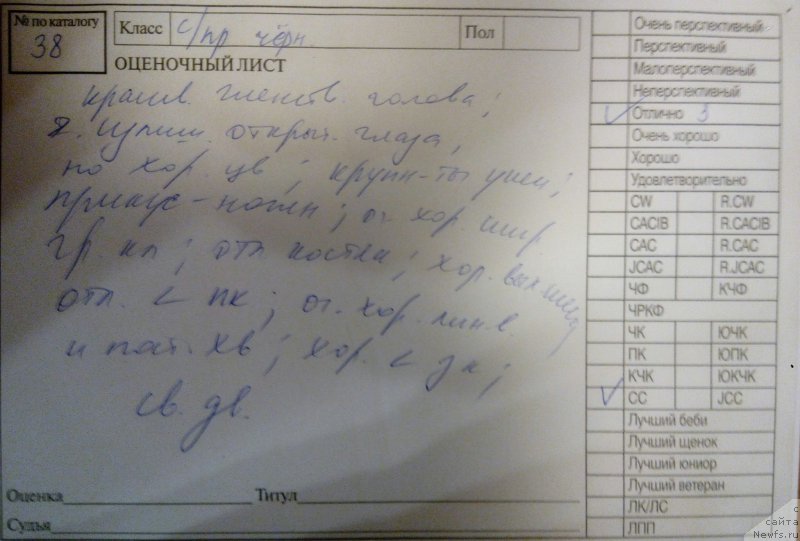 № по каталогу
38
Класс с/пр чёрн.
Пол
ОЦЕНОЧНЫЙ ЛИСТ
красив. женств. голова;
я. излиш. открыт. глаза,
но хор цв; крупн-ты уши;
прикус - ножн; оч хор. шир.
гр. кл; отл костяк; хор. вых шеи
отл. < пк; оч. хор. лин. в.
и пост. хв; хор < зк;
св. дв.
Оценка
Титул
Судья
Очень перспективный
Перспективный
Малоперспективный
Неперспективный
Отлично 3
Очень хорошо
Хорошо
Удовлетворительно
CW R.CW
CACIB R.CACIB
CAC R.CAC
JCAC R.JCAC
ЧФ КЧФ
ЧРКФ
ЧК ЮЧК
ПК ЮПК
КЧК ЮКЧК
СС JCC
Лучший беби
Лучший щенок
Лучший юниор
Лучший ветеран
ЛК/ЛС
ЛПП
с
сайта
Newfs.ru